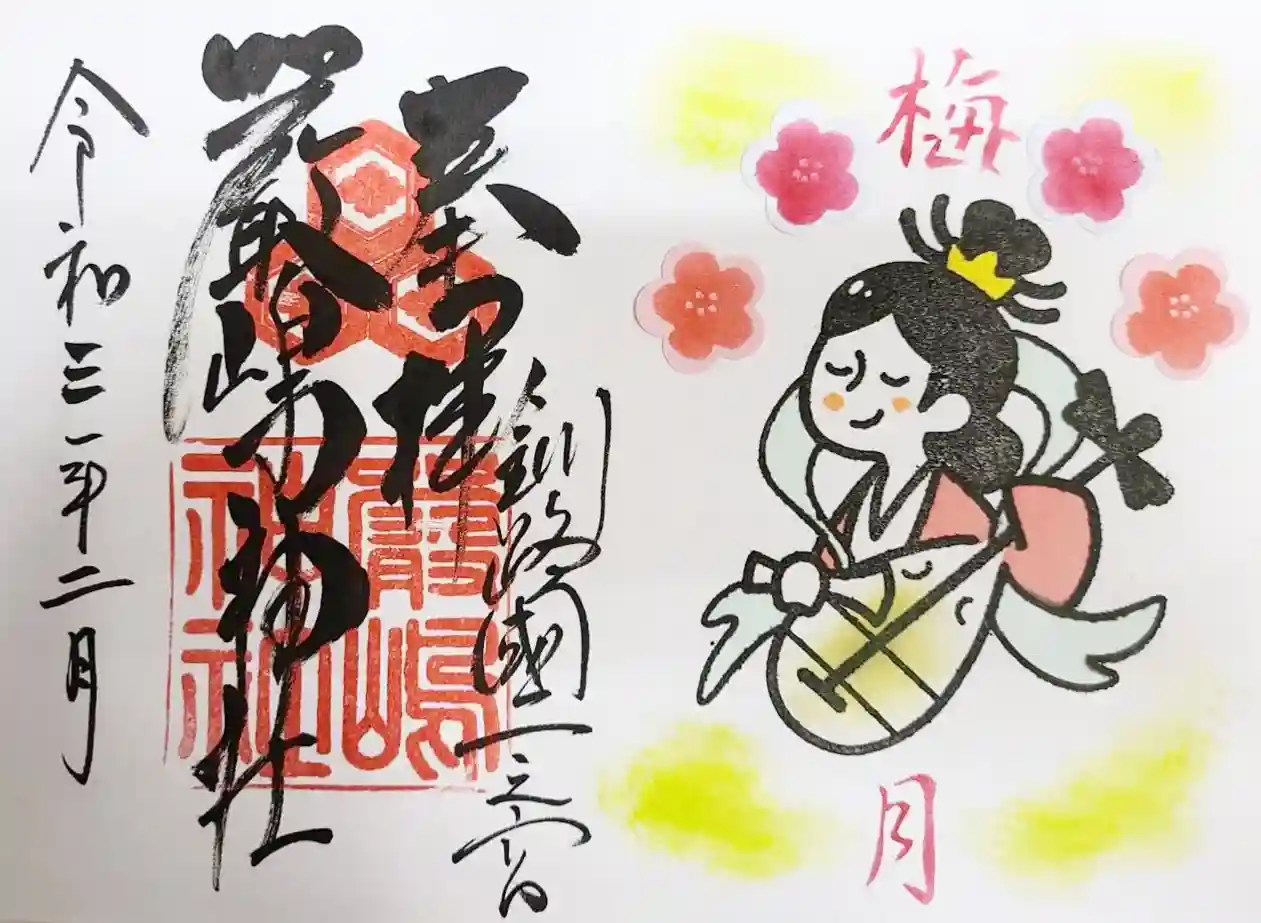 梅
月
釧路國一之宮
奉拝
嚴島神社
嚴嶋
神社
令和三年二月